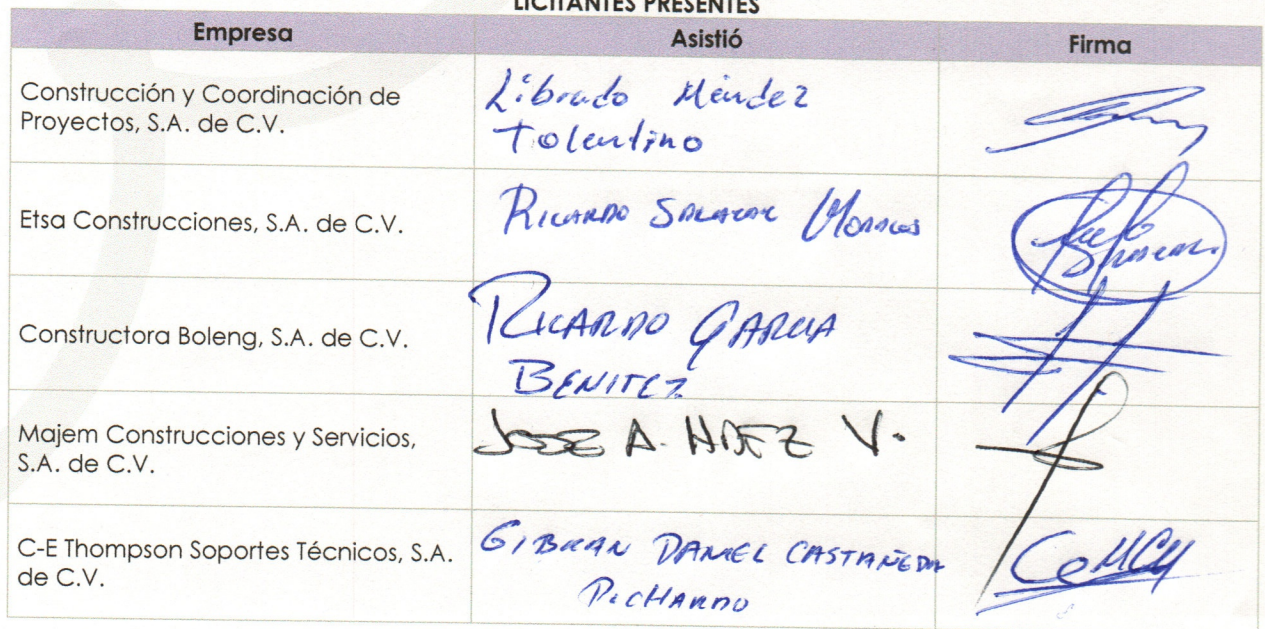 LICITANTES PRESENTES
Empresa Asistió Firma
Construcción y Coordinación de
Proyectos, S.A. de C.V.
Librado Méndez
Tolentino
Etsa Construcciones, S.A. de C.V.
Ricardo Salazar Morales
Constructora Boleng, S.A. de C.V.
RICARDO GARCIA
BENITEZ
Majem Construcciones y Servicios,
S.A. de C.V.
JOSE A. V.
C-E Thompson Soportes Técnicos, S.A.
de C.V.
GIBRAN DANIEL CASTAÑEDA
PICHARDO